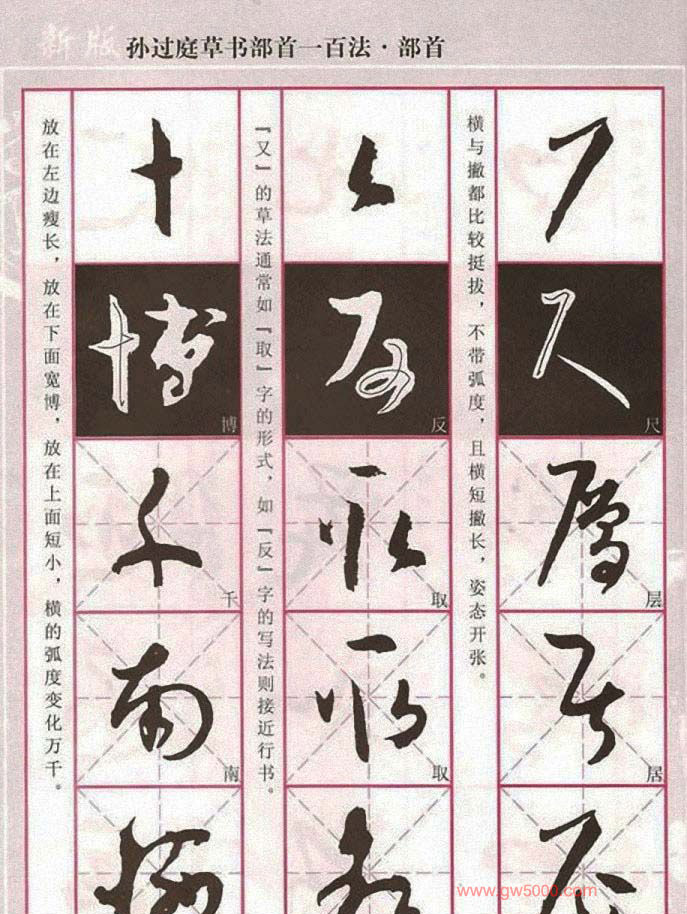 新版
孙过庭草书部首一百法·部首
横与撇都比较挺拔，不带弧度，且横短撇长，姿态开张。
尺
层
居
『又』的草法通常如『取』字的形式，如『反』字的写法则接近行书。
反
取
取
放在左边瘦长，放在下面宽博，放在上面短小，横的弧度变化万千。
博
千
南
www.gw5000.com